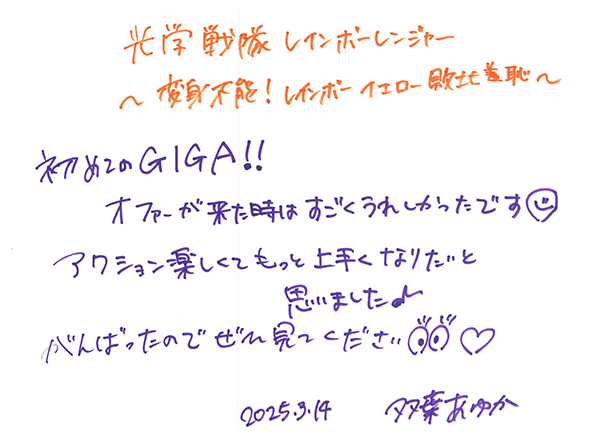 光学戦隊レインボーレンジャー
～変身不能！レインボーイエロー敗北羞恥～
初めてのGIGA!!
オファーが来た時はすごくうれしかったです
アクション楽しくてもっと上手くなりたいと
思いました♪
がんばったのでぜひ見てください♡
2025.3.14 双葉あゆか